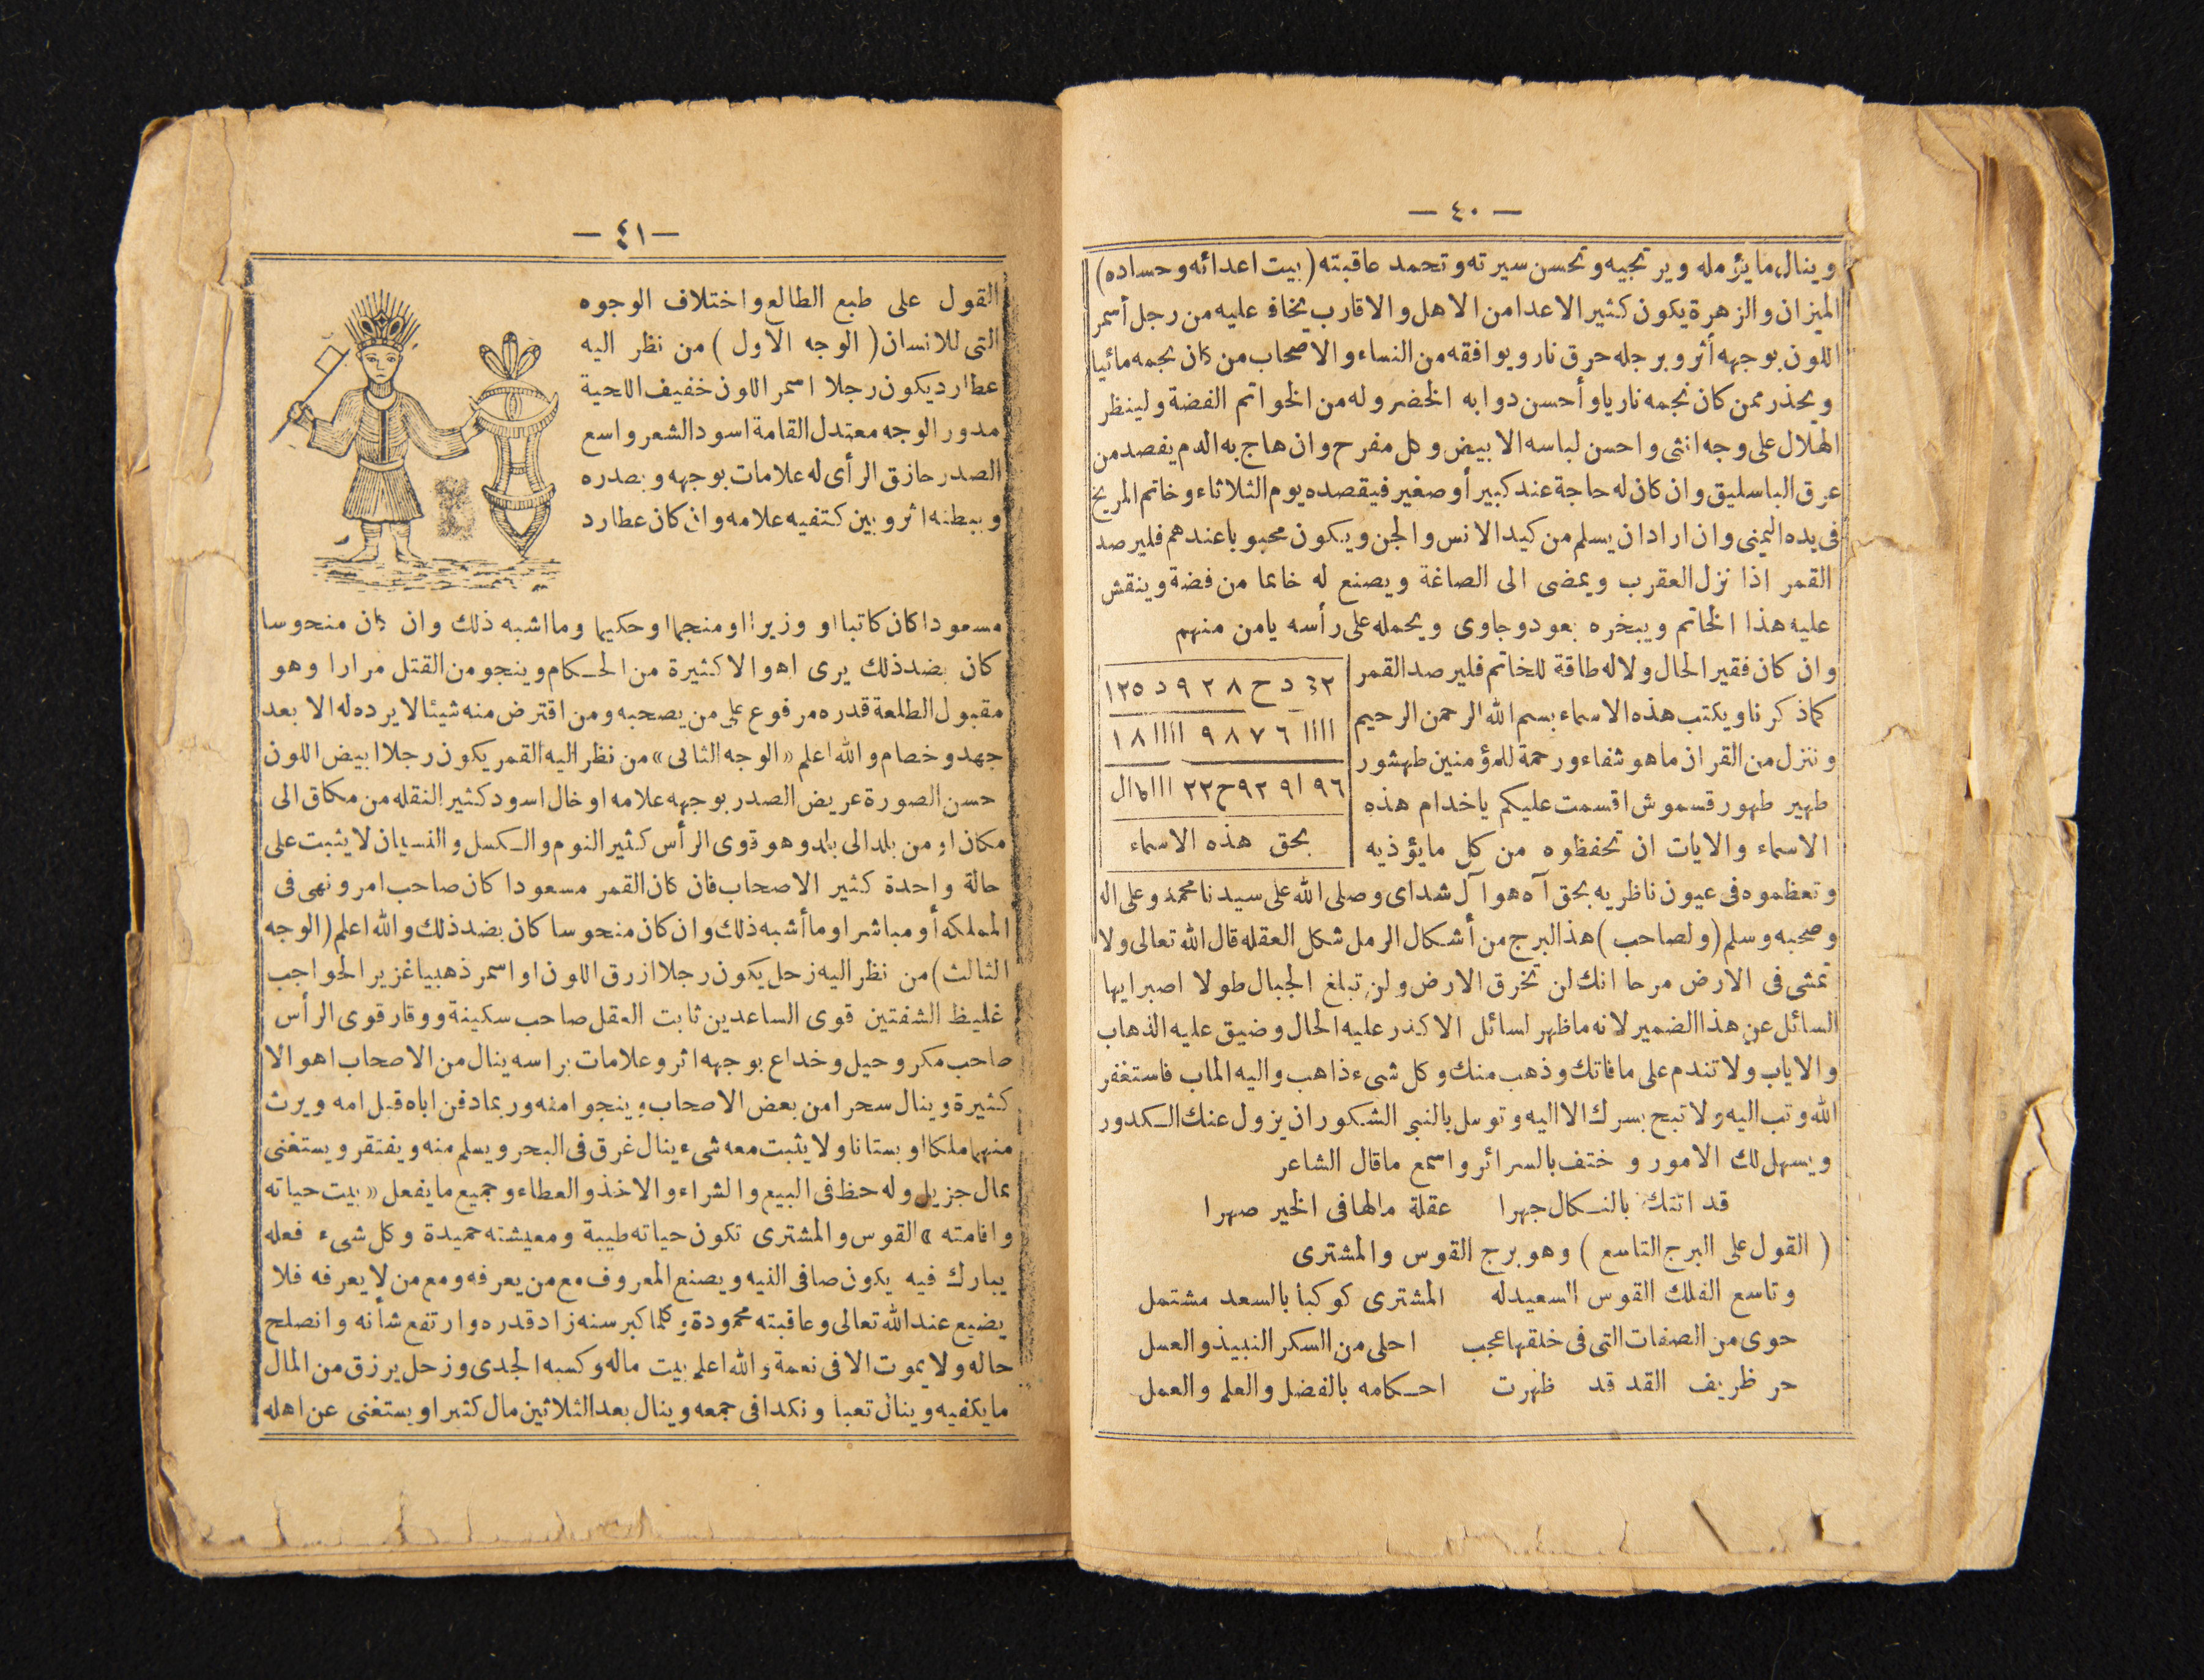 — ٤٠ —
وينال ما يؤمله ويرتجيه وتحسن سيرته وتحمد عاقبته (بيت اعدائه وحساده)
الميزان والزهرة يكون كثير الاعدا من الاهل والاقارب يخاف عليه من رجل أسمر
اللون بوجهه أثر وبرجله حرق نار ويوافقه من النساء والاصحاب من كان نجمه مائيا
ويحذر ممن كان نجمه ناريا وأحسن دوابه الخضر وله من الخواتم الفضة ولينظر
الهلال على وجه انثى واحسن لباسه الابيض وكل مفرح وان هاج به الدم يفصد من
عرق الباسليق وان كان له حاجة عند كبير أو صغير فيقصده يوم الثلاثاء وخاتم المريخ
فى يده اليمنى وان اراد ان يسلم من كيد الانس والجن ويكون محبوبا عندهم فليرصد
القمر اذا نزل العقرب ويمضى الى الصاغة ويصنع له خاتما من فضة وينقش
عليه هذا الخاتم ويبخره بعود وجاوى ويحمله على رأسه يامن منهم
وان كان فقير الحال ولا له طاقة للخاتم فليرصد القمر
كما ذكرنا ويكتب هذه الاسماء بسم الله الرحمن الرحيم
وننزل من القران ما هو شفاء ورحمة للمؤمنين طهشور
طهير طهور قسموش اقسمت عليكم ياخدام هذه
الاسماء والايات ان تحفظوه من كل ما يؤذيه
د ح ٨ ٢ ٩ د ١٢٥
١١١١ ٦ ٧ ٨ ٩ ١١١١١ ٨ ١
٩٦ ١٩ ٩٢ح ٢٢
بحق هذه الاسماء
وتعظموه فى عيون ناظريه بحق آه هو آل شداى وصلى الله على سيدنا محمد وعلى اله
وصحبه وسلم (ولصاحب) هذا البرج من أشكال الرمل شكل العقله قال الله تعالى ولا
تمشى فى الارض مرحا انك لن تخرق الارض ولن تبلغ الجبال طولا اصبر ايها
السائل عن هذا الضمير لانه ما ظهر لسائل الا كدر عليه الحال وضيق عليه الذهاب
والاياب ولا تندم على ما فاتك وذهب منك وكل شىء ذاهب واليه الماب فاستغفر
الله وتب اليه ولا تبح بسرك الا اليه وتوسل بالنبى الشكور ان يزول عنك الكدور
ويسهل لك الامور و ختف بالسرائر واسمع ماقال الشاعر
قد اتتك بالنكال جهرا عقلة مالها فى الخير صهرا
( القول على البرج التاسع ) وهو برج القوس والمشترى
وتاسع الفلك القوس السعيد له المشترى كوكبا بالسعد مشتمل
حوى من الصفات التى فى خلقها عجب احلى من السكر النبيذ والعسل
حر ظريف القد قد ظهرت احكامه بالفضل والعلم والعمل
— ٤١ —
القول على طبع الطالع واختلاف الوجوه
التى للانسان ( الوجه الاول ) من نظر اليه
عطارد يكون رجلا اسمر اللون خفيف اللحية
مدور الوجه معتدل القامة اسود الشعر واسع
الصدر حازق الرأى له علامات بوجهه وبصدره
وببطنه اثر وبين كتفيه علامه وان كان عطارد
مسعودا كان كاتبا او وزيرا او منجما او حكيما وما اشبه ذلك وان كان منحوسا
كان بضد ذلك يرى اهوالا كثيرة من الحكام وينجو من القتل مرارا وهو
مقبول الطلعة قدره مرفوع على من يصحبه ومن اقترض منه شيئا لا يرده له الا بعد
جهد وخصام والله اعلم «الوجه الثانى» من نظر اليه القمر يكون رجلا ابيض اللون
حسن الصورة عريض الصدر بوجهه علامه او خال اسود كثير النقله من مكان الى
مكان او من بلد الى بلد وهو قوى الرأس كثير النوم والكسل والنسيان لا يثبت على
حالة واحدة كثير الاصحاب فان كان القمر مسعودا كان صاحب امر ونهى فى
المملكه أو مباشرا وما أشبه ذلك وان كان منحوسا كان بضد ذلك والله اعلم (الوجه
الثالث) من نظر اليه زحل يكون رجلا ازرق اللون او اسمر ذهبيا غزير الحواجب
غليظ الشفتين قوى الساعدين ثابت العقل صاحب سكينة ووقار قوى الرأس
صاحب مكر وحيل وخداع بوجهه اثر وعلامات براسه ينال من الاصحاب اهوالا
كثيرة وينال سحرا من بعض الاصحاب وينجوا منه وربما دفن اباه قبل امه ويرث
منهما ملكا او بستانا ولا يثبت معه شىء ينال غرق فى البحر ويسلم منه ويفتقر ويستغنى
بمال جزيل وله حظ فى البيع والشراء والاخذ والعطاء وجميع ما يفعل «بيت حياته
واقامته» القوس والمشترى تكون حياته طيبة ومعيشته حميدة وكل شىء فعله
يبارك فيه يكون صافى النيه ويصنع المعروف مع من يعرفه ومع من لا يعرفه فلا
يضيع عند الله تعالى وعاقبته محمودة وكلما كبر سنه زاد قدره وارتفع شأنه وانصلح
حاله ولا يموت الا فى نعمة والله اعلم بيت ماله وكسبه الجدى وزحل يرزق من المال
ما يكفيه وينال تعبا ونكدا فى جمعه وينال بعد الثلاثين مال كثيرا ويستغنى عن اهله